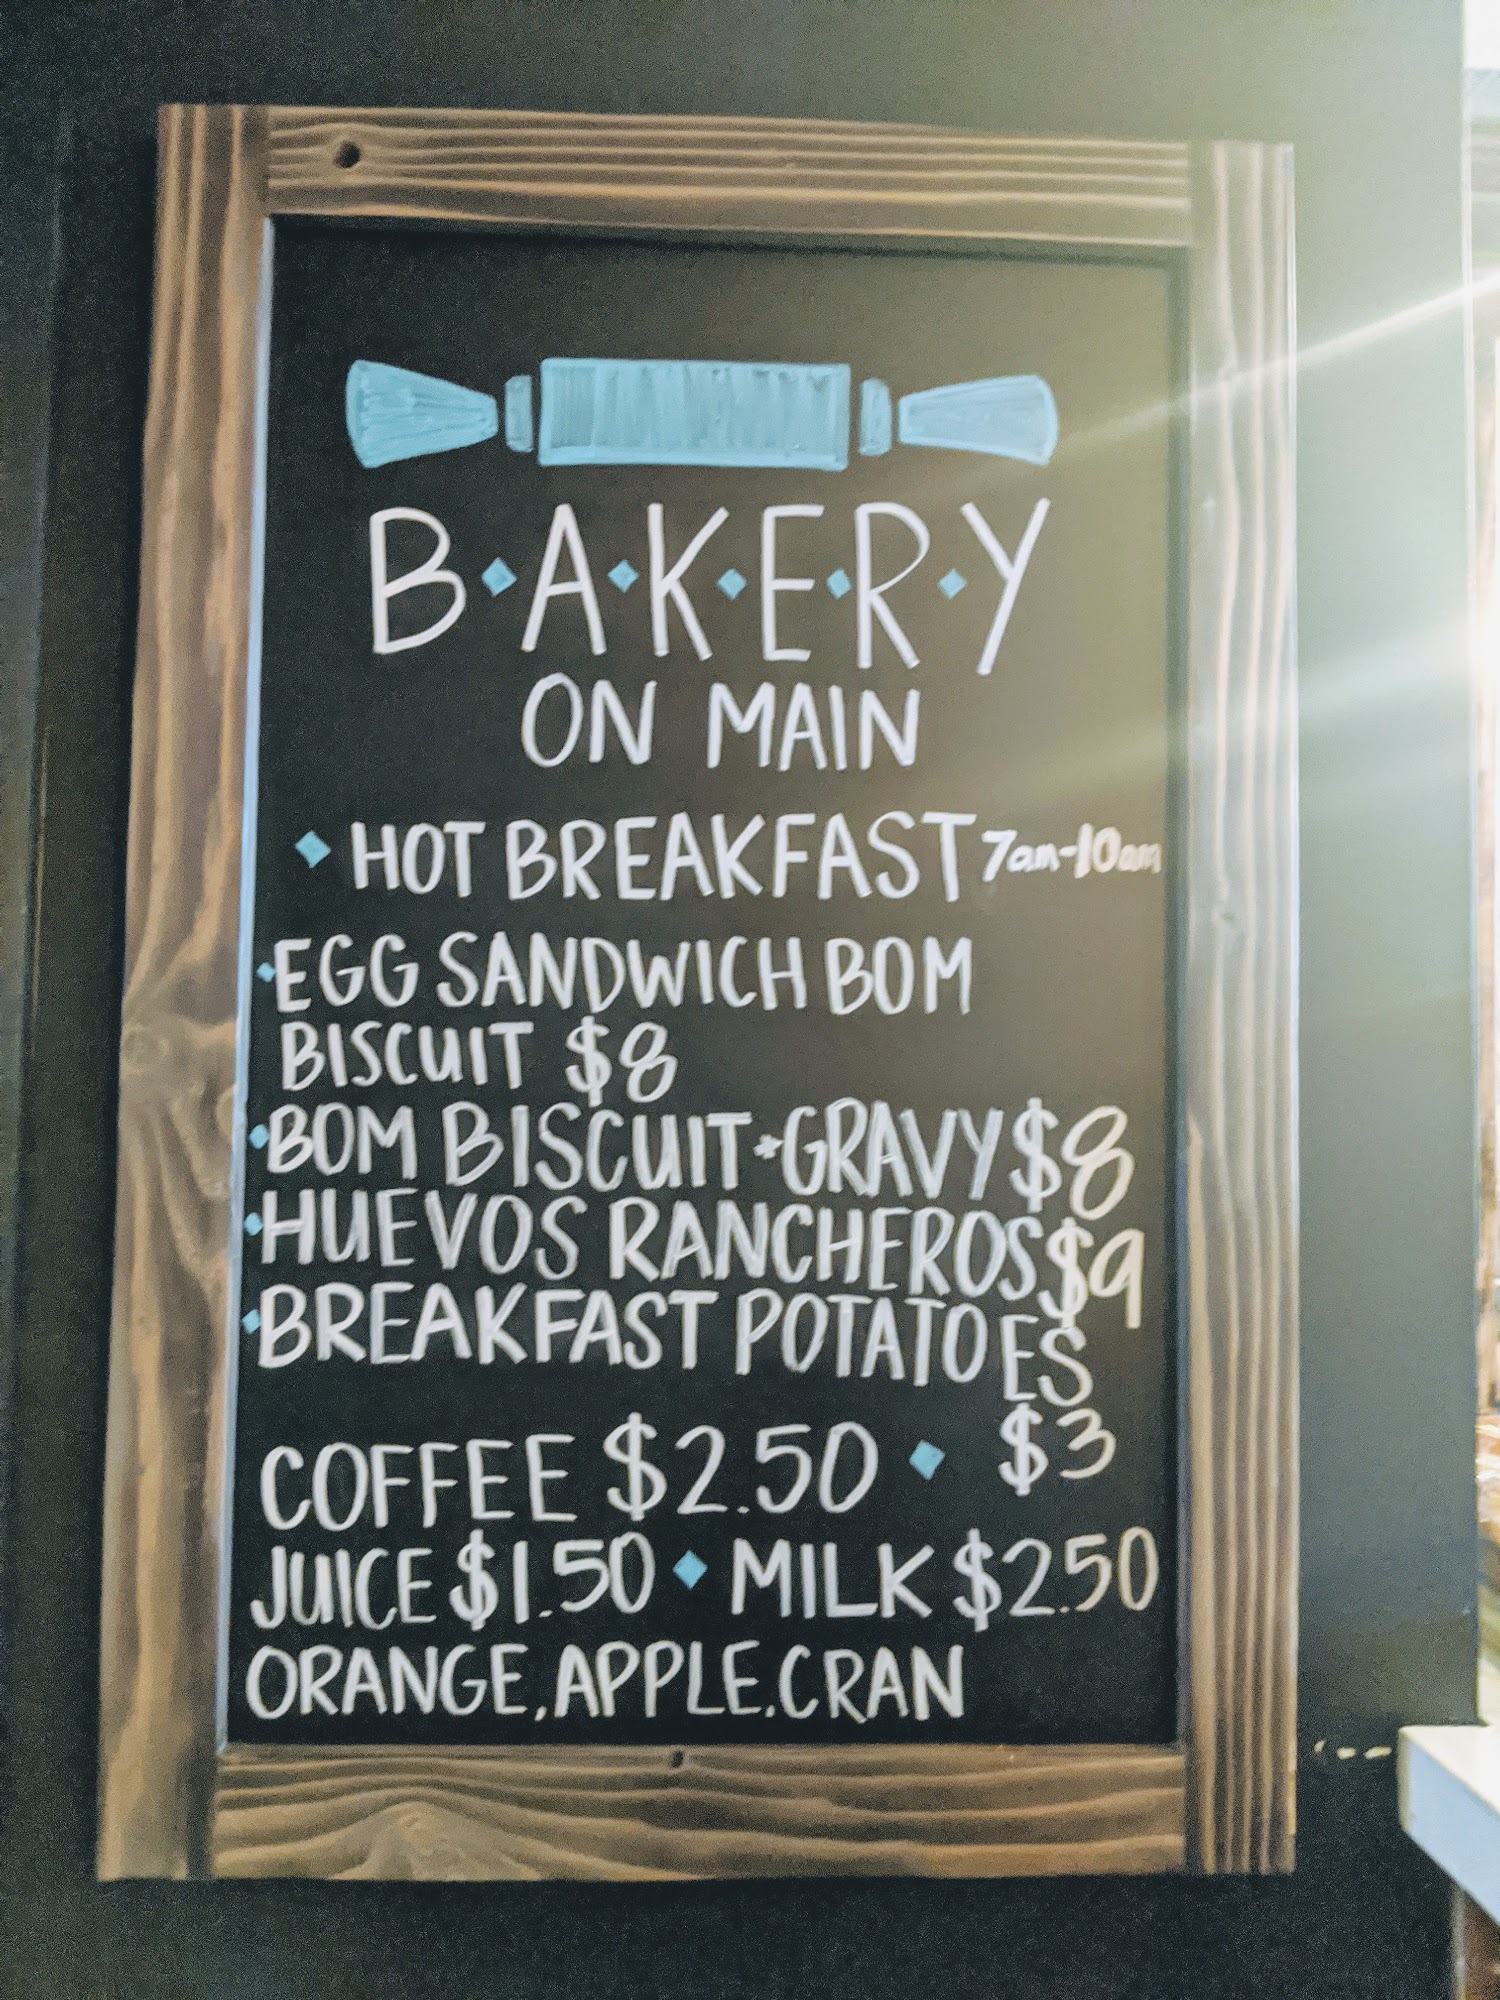 B·A·K·E·R·Y
ON MAIN
HOT BREAKFAST 7am-10am
EGG SANDWICH BOM
BISCUIT $8
BOM BISCUIT + GRAVY $8
HUEVOS RANCHEROS $9
BREAKFAST POTATOES
$3
COFFEE $2.50
JUICE $1.50 MILK $2.50
ORANGE, APPLE, CRAN